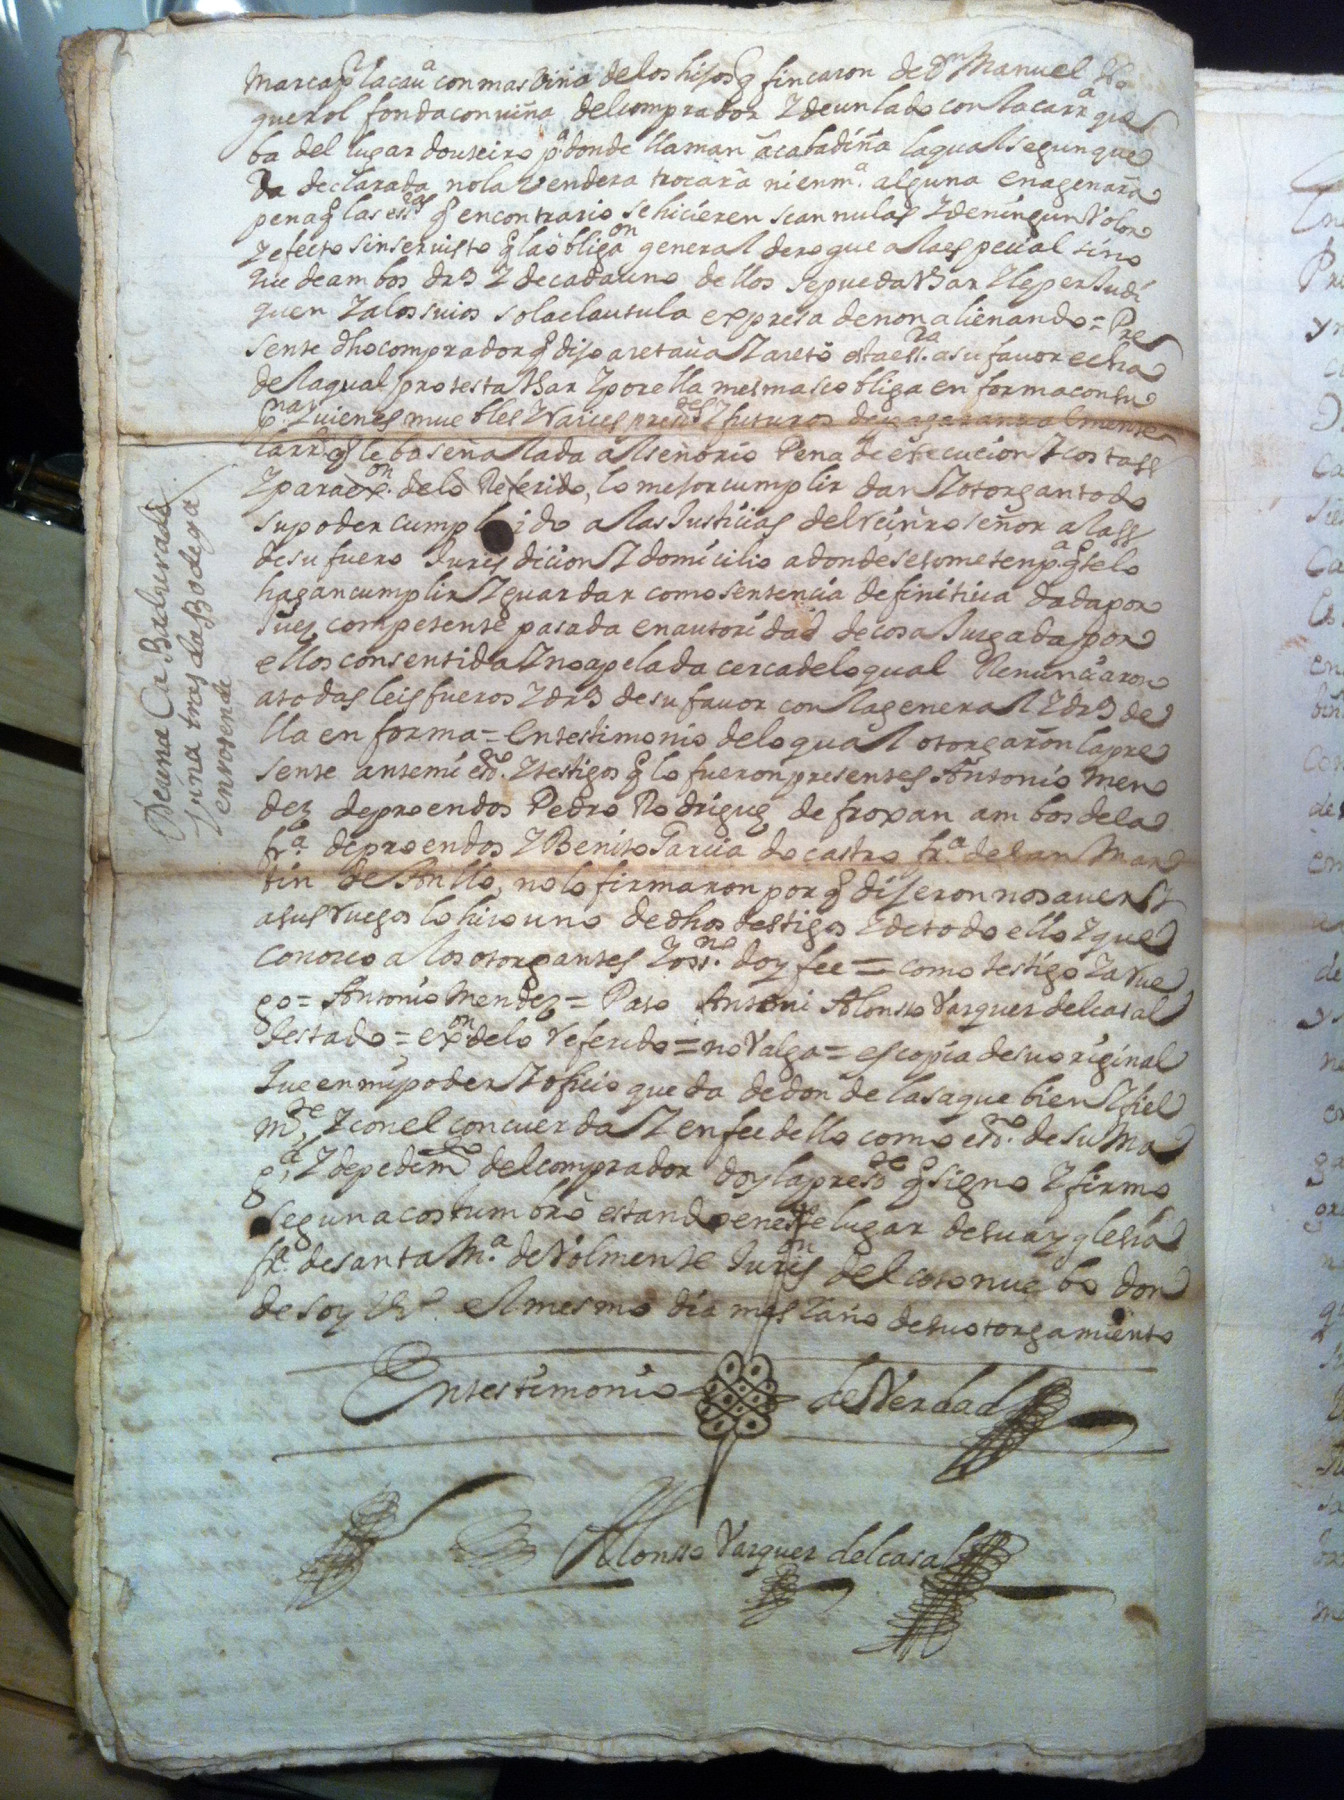 marca pr la cava con mas viña de los hijos q fincaron de Dn Manuel
guerol fonda con viña del comprador y de un lado con la carra que
ba del lugar douteiro pa donde llaman a cabadiña la qual segun que
da declarada no la vendera trocara ni en ma alguna enagenara
pena q las esras q en contrario se hicieren sean nulas y de ningun valor
y efecto sin ser visto q la obligaon general derogue a la especial sino
que de ambos drs y de cada uno dellos se pueda usar y le perjudi
quen y a los suios so la clausula expresa de non alienando = Pre
sente dho comprador q dijo acetava y aceto esta esra a su favor echa
de la qual protesta usar y por ella mesma se obliga en forma con su
pna y vienes muebles y raices presdes y futuros de pagar anualmente
la rra q le ba señalada al señorio Pena de execucion y costass
y para exon. de lo Referido, lo mejor cumplir dan y otorgan todo
su poder cumplido a las Justicias del rei nro señor a lass
de su fuero Jurisdicion y domicilio a donde se someten pa q se lo
hagan cumplir y guardar como sentencia definitiva dada por
Juez competente pasada en autoridad de cosa Juzgada por
ellos consentida y no apelada cerca de lo qual Renunciaron
a todas leis fueros y drs de su favor con la general y drs de
lla en forma = En testimonio de lo qual otorgaron la pre
sente ante mi esno. y testigos q lo fueron presentes Antonio Men
dez de proendos Pedro Rodriguez de froxan ambos de la
fra. de proendos y Benito Garcia do castro fra. de san Mar
tin de Anllo, no lo firmaron por q dijeron no saver y
a sus ruegos lo hiço uno de dhos testigos y de todo ello y que
conozco a los otorgantes Yo ssno. doy fee = como testigo y a rue
go = Antonio Mendez = Paso Antemi Alonsso Vazquez del casal
testado = exon de lo referido = no Valga = es copia de su original
que en mi poder y oficio queda de donde la saque bien y fiel
mte, y con el concuerda y en fee dello como esno. de su Ma
gd, y de pedimto del comprador doy la preste q signo y firmo
segun acostumbro estando en este lugar desuaryglesia
fra. de santa Ma. de Volmente Jurison del coto nuebo don
de soy vo. el mesmo dia mes y año de su otorgamiento
En testimonio de Verdad
Alonsso Vazquez del casal
De una Ca Badurada
y una tras da Bodega
en vosende